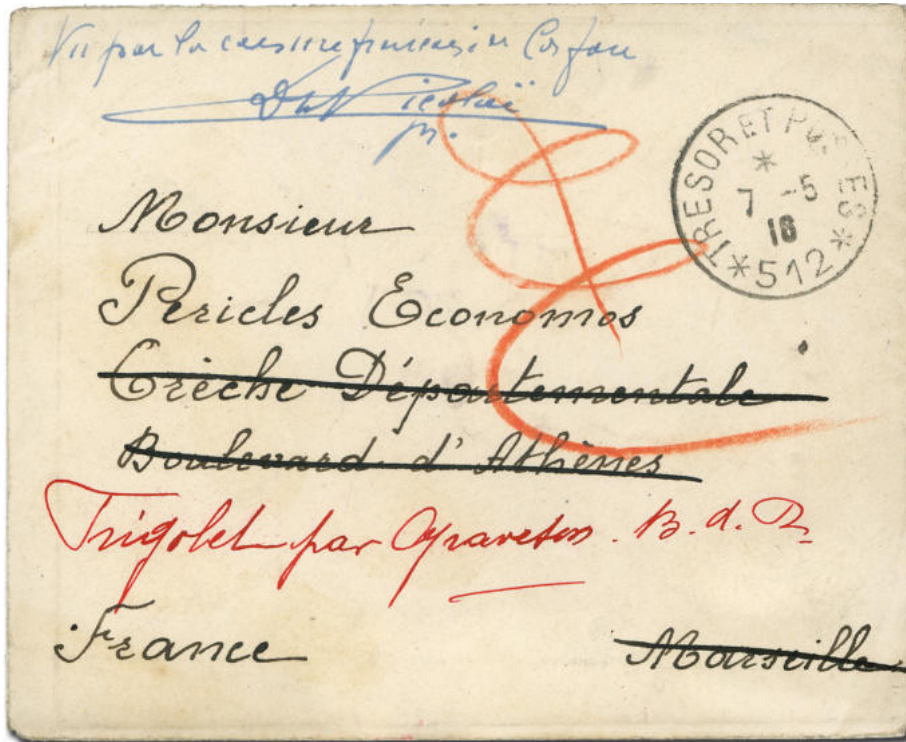 Vu par la censure française Corfou
TRESOR ET POSTES
* 7 -5 16
*512*
Monsieur
Pericles Economos
Crèche Départementale
Boulevard d'Athènes
Frigolet par Graveson. B. d. R
France
Marseille